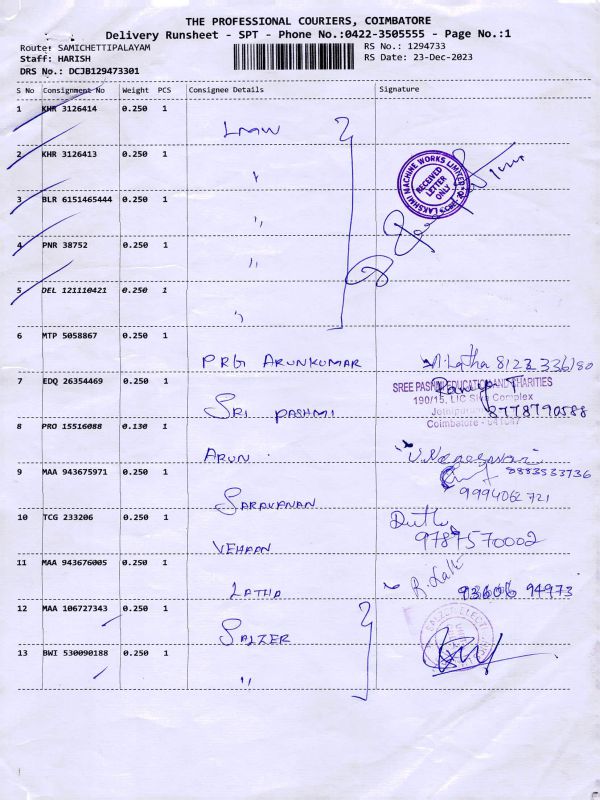 THE PROFESSIONAL COURIERS, COIMBATORE
Delivery Runsheet - SPT - Phone No.:0422-3505555 - Page No.:1
Route: SAMICHETTIPALAYAM
RS No.: 1294733
Staff: HARISH
RS Date: 23-Dec-2023
DRS No.: DCJB129473301
S No Consignment No Weight PCS Consignee Details Signature
1 KHR 3126414 0.250 1
LMW
2 KHR 3126413 0.250 1
"
LAKSHMI MACHINE WORKS LIMITED
RECEIVED
LETTER
ONLY
3 BLR 6151465444 0.250 1
"
4 PNR 38752 0.250 1
"
5 DEL 121110421 0.250 1
"
6 MTP 5058867 0.250 1
PRG ARUNKUMAR
M.Latha 8122336180
7 EDQ 26354469 0.250 1
SREE PASHMI EDUCATION AND CHARITIES
190/15, LIC Complex
SRI PASHMI
8778790588
Coimbatore - 641047
8 PRO 15516088 0.130 1
ARUN
9 MAA 943675971 0.250 1
8883533736
SARAVANAN
9994062721
10 TCG 233206 0.250 1
VEHAAN
9787570002
11 MAA 943676005 0.250 1
LATHA
94973
12 MAA 106727343 0.250 1
SALZER
13 BWI 530090188 0.250 1
"